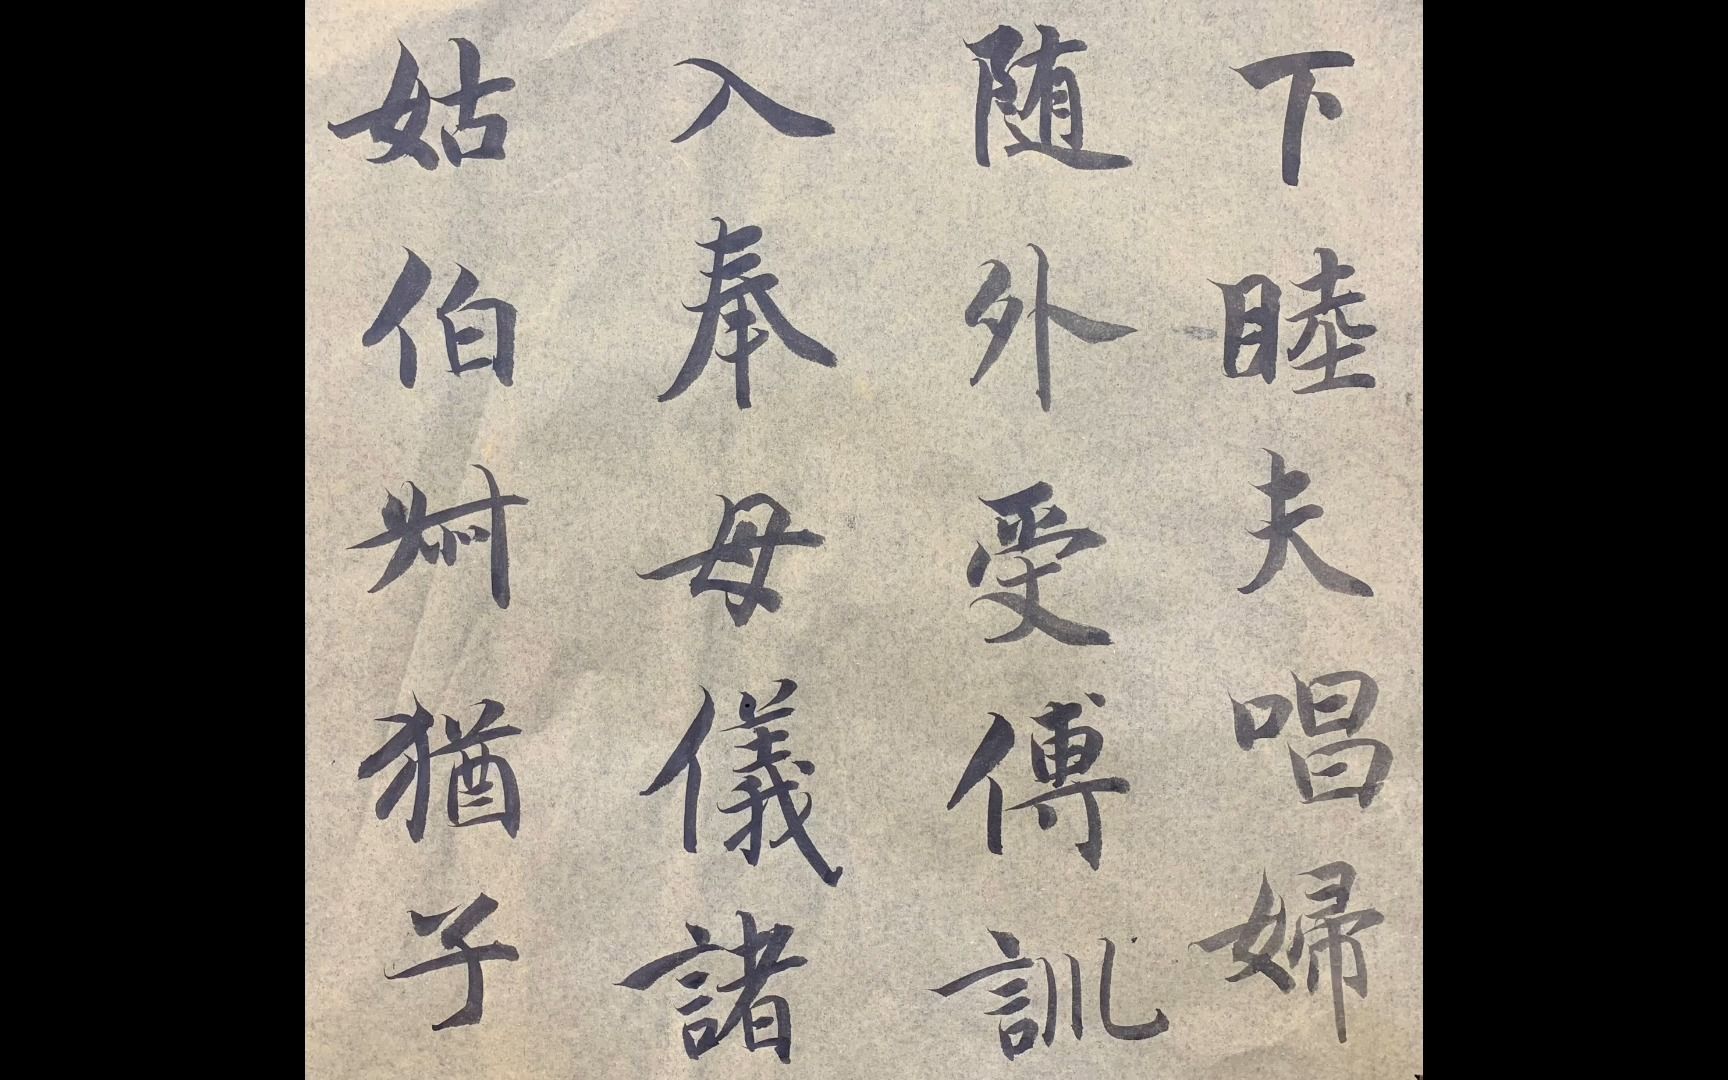 下睦夫唱婦
随外受傅訓
入奉母儀諸
姑伯叔猶子